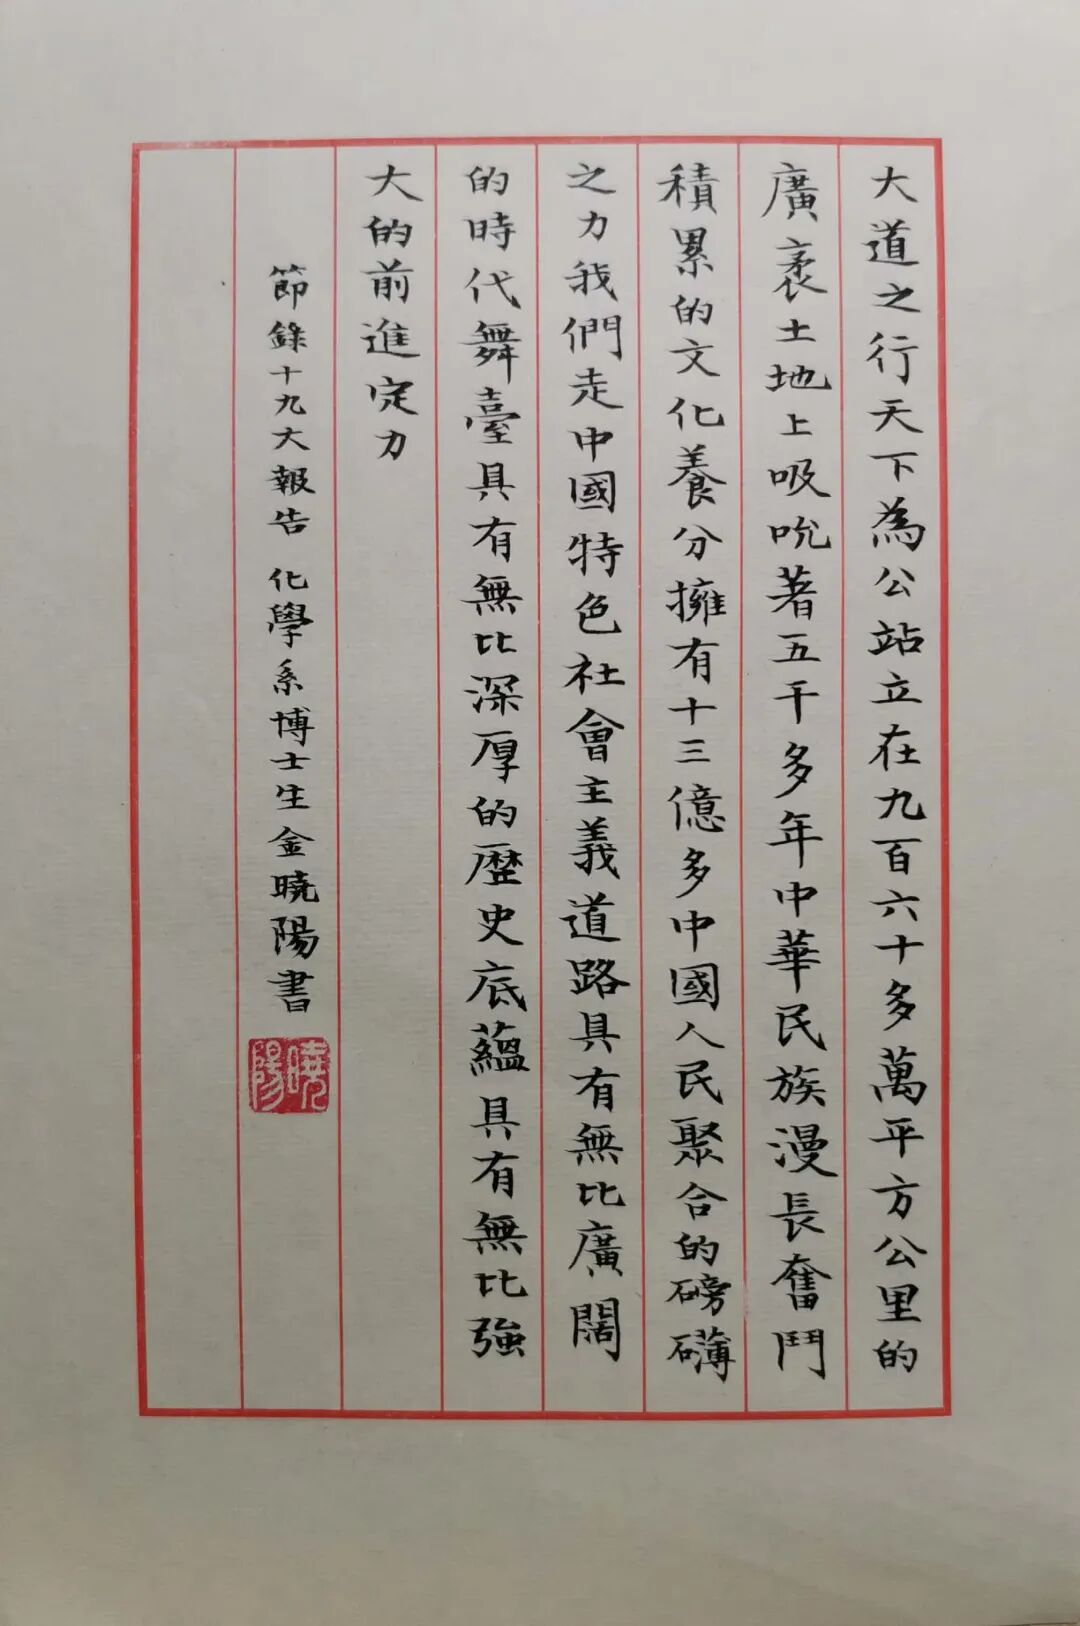 大道之行天下為公站立在九百六十多萬平方公里的
廣袤土地上吸吮著五千多年中華民族漫長奮鬥
積累的文化養分擁有十三億多中國人民聚合的磅礴
之力我們走中國特色社會主義道路具有無比廣闊
的時代舞臺具有無比深厚的歷史底蘊具有無比強
大的前進定力
節錄十九大報告 化學系博士生金曉陽書
曉陽